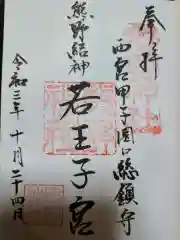 奉拝
西宮甲子園口総鎮守
熊野結神
若王子宮
令和三年十月二十四日